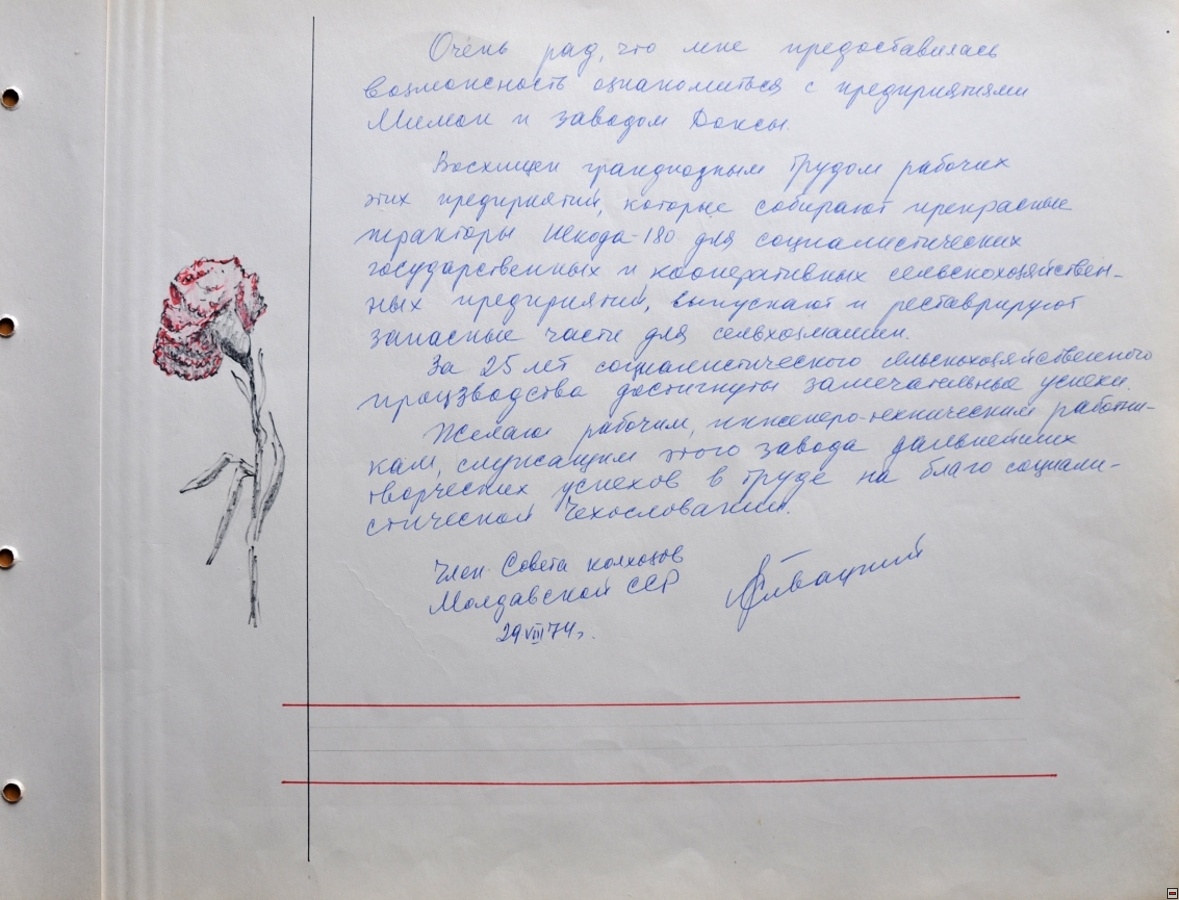 Очень рад, что мне предоставилась
возможность ознакомиться с предприятиями
Мимон и заводом Доксы.
Восхищен грандиозным трудом рабочих
этих предприятий, которые собирают прекрасные
тракторы Шкода-180 для социалистических
государственных и кооперативных сельскохозяйствен-
ных предприятий, выпускают и реставрируют
запасные части для сельхозмашин.
За 25 лет социалистического сельскохозяйственного
производства достигнуты замечательные успехи.
Желаю рабочим, инженеро-техническим работни-
кам, служащим этого завода дальнейших
творческих успехов в труде на благо социали-
стической Чехословакии.
Член Совета колхозов
Молдавской ССР
29 VIII 74 г.